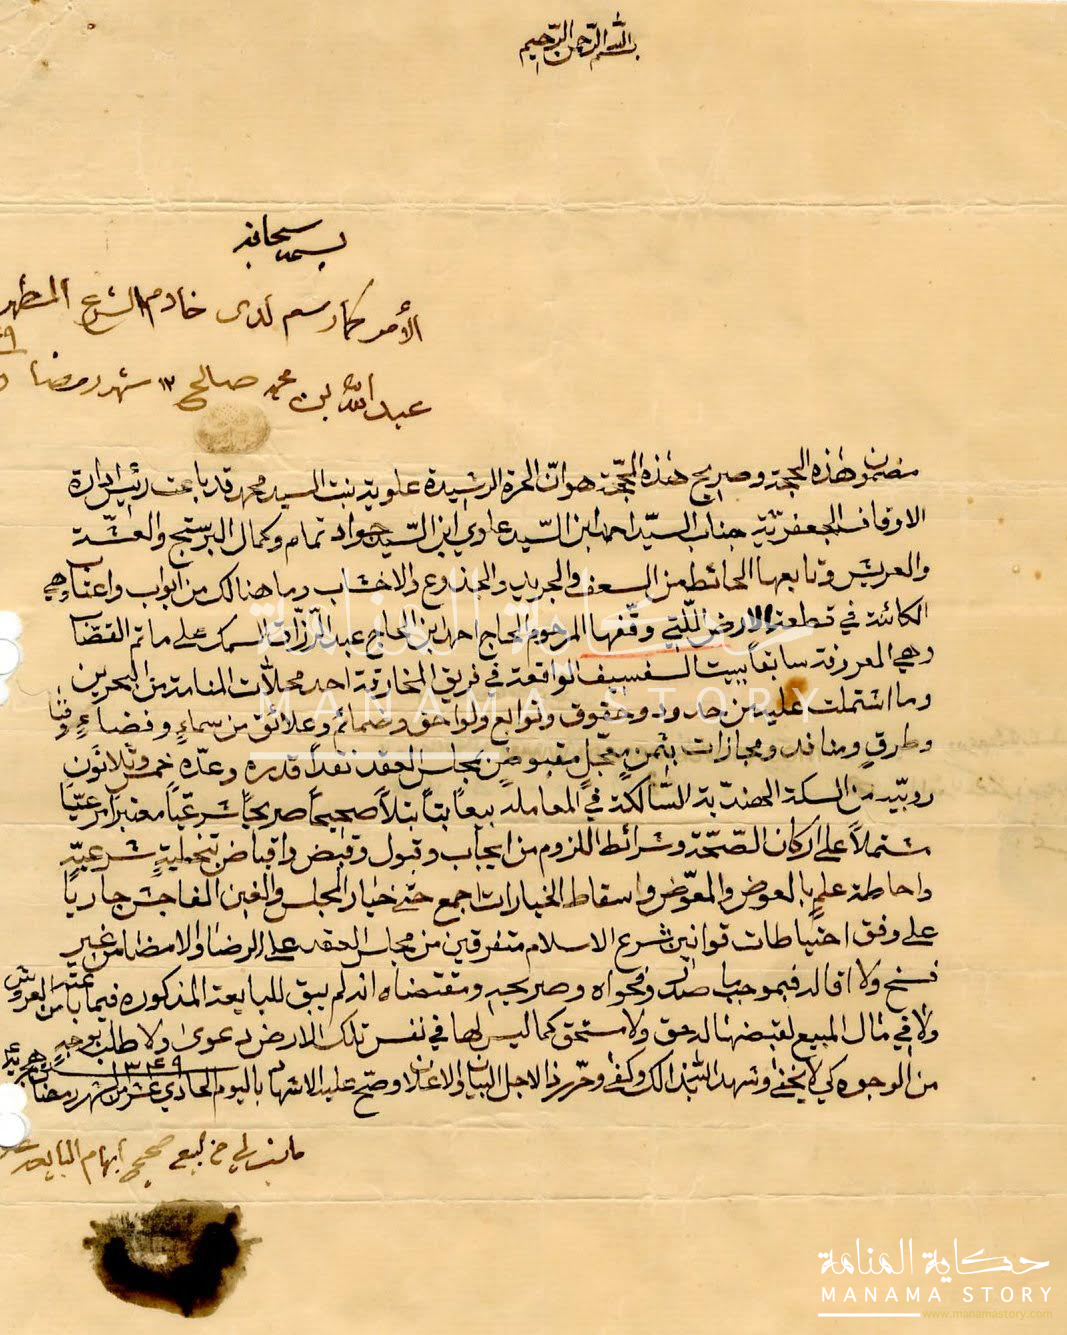 بسم الله الرحمن الرحيم
بسمه سبحانه
الأمر كما رسم لدى خادم الشرع المطهر
عبدالله بن محمد صالح ١٣ شهر رمضان
مضمون هذه الحجة وصريح هذه الحجّة هو انّ الحرة الرشيدة علوية بنت السيد محمد قد باعت رئيس ادارة
الاوقاف الجعفريّة جناب السيّد احمد ابن السيّد علوي ابن السيّد جواد تمام وكمال البرستج والعشّة
والعريش وتابعها الحائط من السعف والجريد والجذوع والاخشاب وما هنالك من ابواب واعتاب وهي
الكائنة في قطعة الارض اللّتي وقّفها المرحوم الحاج احمد بن الحاج عبد الرّزّاق السمك على ماتم القصّاب
وهي المعروفة سابقاً ببيت السفسيف الواقعة في فريق المخارقة احد محلّات المنامة من البحرين
وما اشتملت عليه من حدود وحقوق وتوابع ولواحق وضمائم وعلائق من سماءٍ وفضاءٍ وفناءٍ
وطرقٍ ومنافد ومجازات بثمنٍ معجّلٍ مقبوضٍ بمجلس العقد نقداً قدره وعدّه خمس وثلاثون
روبيّه من السكة الهندية السّالكة في المعامله بيعاً بتاً بتلاً صحيحاً صريحاً شرعيّاً معتبراً مرعيّاً
مشتملاً على اركان الصّحّة وشرائط اللزوم من ايجاب وقبول وقبض واقباض بتخليةٍ شرعيّةٍ
واحاطة علمٍ بالعوض والمعوّض واسقاط الخيارات اجمع حتّى خيار المجلس والغبن الفاحش جارياً
على وفق احتياطات قوانين شرع الاسلام متفرقين من مجلس العقد على الرضا والامضا من غير
فسخ ولا اقاله فبموجب ما صدر وفحواه وصريحه ومقتضاه انه لم يبق للبايعة المذكوره فيما باعته من العروش
ولا في مال المبيع لقبضها له حق ولا مستحق كما ليس لها في نفس تلك الارض دعوى ولا طلب بوجهٍ
من الوجوه كي لا يخفى وشهد الله بذالك وكفى وحرّر ذا لاجل البيان والاعلان وصحّ عليه الاشهاد باليوم الحادي عشر من شهر رمضان ١٣٤٩ هجريّة
ابهام البايعه
حكاية المنامة
MANAMA STORY
حكاية المنامة
MANAMA STORY
www.manamastory.com